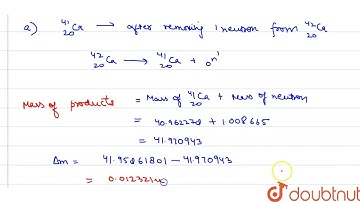 a) ⁴¹₂₀Ca → after removing 1 neutron from ⁴²₂₀Ca
⁴²₂₀Ca → ⁴¹₂₀Ca + ₀n¹
Mass of products = Mass of ⁴¹₂₀Ca + Mass of neutron
= 40.962278 + 1.008665
= 41.970943
Δm = 41.95861801 - 41.970943
= 0.0123214
doubtnut